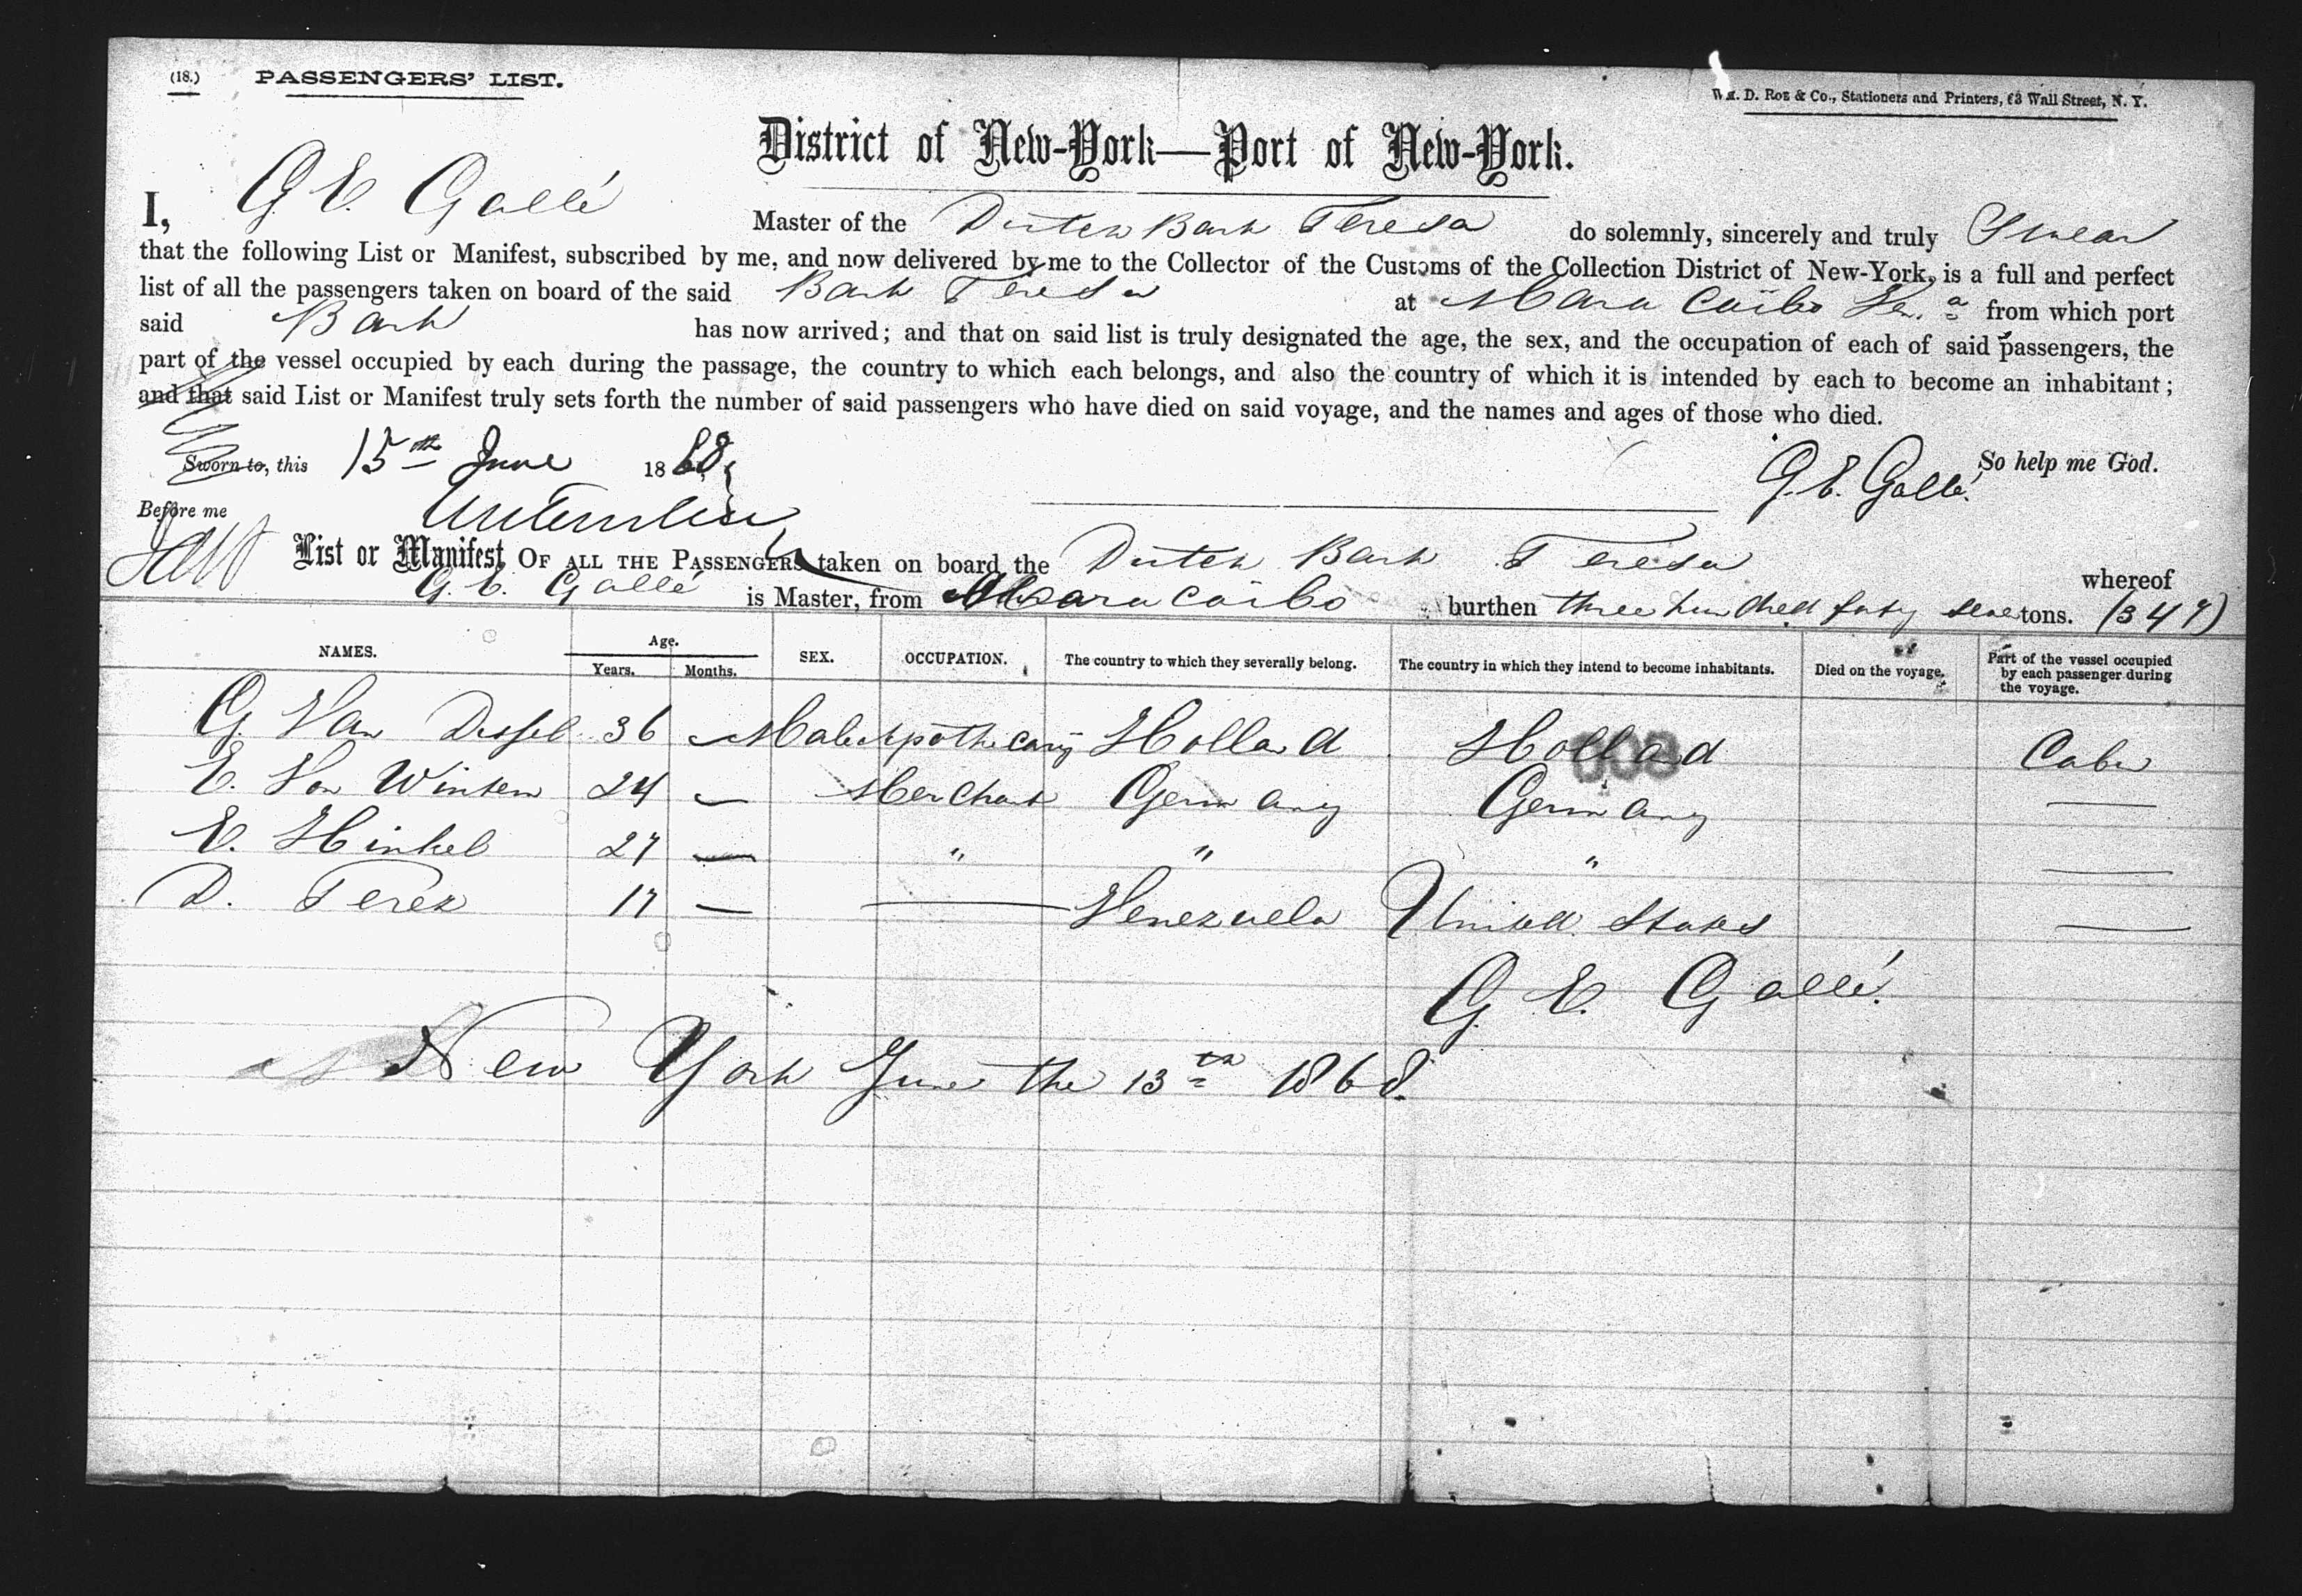 (18.) PASSENGERS' LIST.
Wm. D. Roe & Co., Stationers and Printers, 63 Wall Street, N. Y.
District of New-York—Port of New-York.
I, G. E. Gallé Master of the Dutch Bark Teresa do solemnly, sincerely and truly Swear
that the following List or Manifest, subscribed by me, and now delivered by me to the Collector of the Customs of the Collection District of New-York, is a full and perfect
list of all the passengers taken on board of the said Bark Teresa at Maracaibo Ven.a from which port
said Bark has now arrived; and that on said list is truly designated the age, the sex, and the occupation of each of said passengers, the
part of the vessel occupied by each during the passage, the country to which each belongs, and also the country of which it is intended by each to become an inhabitant;
and that said List or Manifest truly sets forth the number of said passengers who have died on said voyage, and the names and ages of those who died.
So help me God.
Sworn to, this 15th June 1868
G. E. Gallé
Before me
List or Manifest OF ALL THE PASSENGERS taken on board the Dutch Bark Teresa whereof
G. E. Gallé is Master, from Maracaibo burthen three hundred forty seve tons. (347)
NAMES. Age. Years. Months. SEX. OCCUPATION. The country to which they severally belong. The country in which they intend to become inhabitants. Died on the voyage. Part of the vessel occupied by each passenger during the voyage.
G. Van Dissel 36 — Male Apothecary Holland Holland Cabin
E. Von Winkem 24 — Merchant Germany Germany —
E. Hinkel 27 — " " " —
D. Terek 17 — — Venezuela United States —
G. E. Gallé.
New York June the 13th 1868.